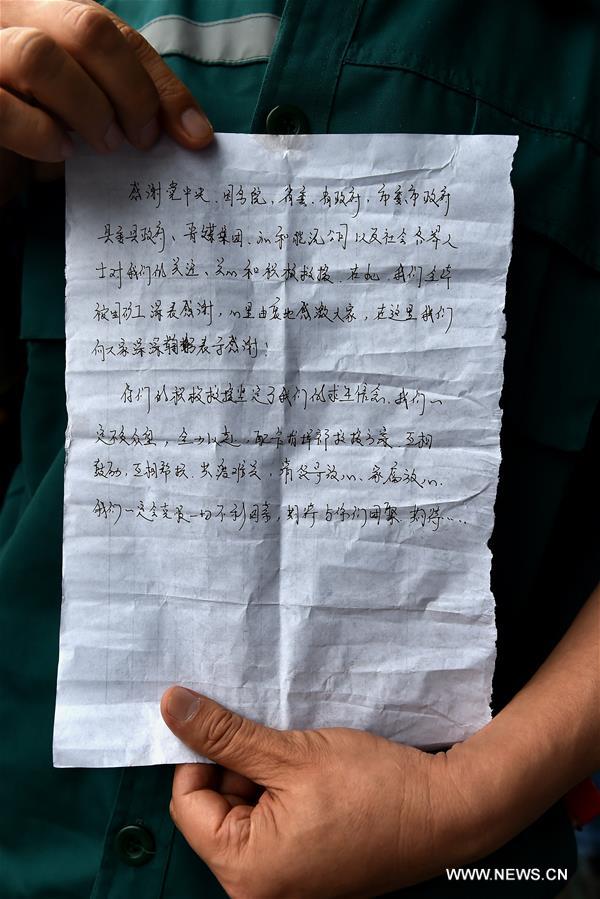 感谢党中央、国务院、省委、省政府，市委市政府
县委县政府、晋煤集团、 和能源公司以及社会各界人
士对我们的关注、关心和积极救援。在此、我们全体
被困矿工深表感谢，心里由衷地感激大家，在这里我们
向大家深深鞠躬表示感谢！
你们的积极救援坚定了我们的求生信念、我们
定不负众望，全力以赴，配合指挥部救援方案、互相
鼓励，互相帮扶、共渡难关，请领导放心、家属放心、
我们一定会克服一切不利因素，期待与你们团聚、期待......
WWW.NEWS.CN